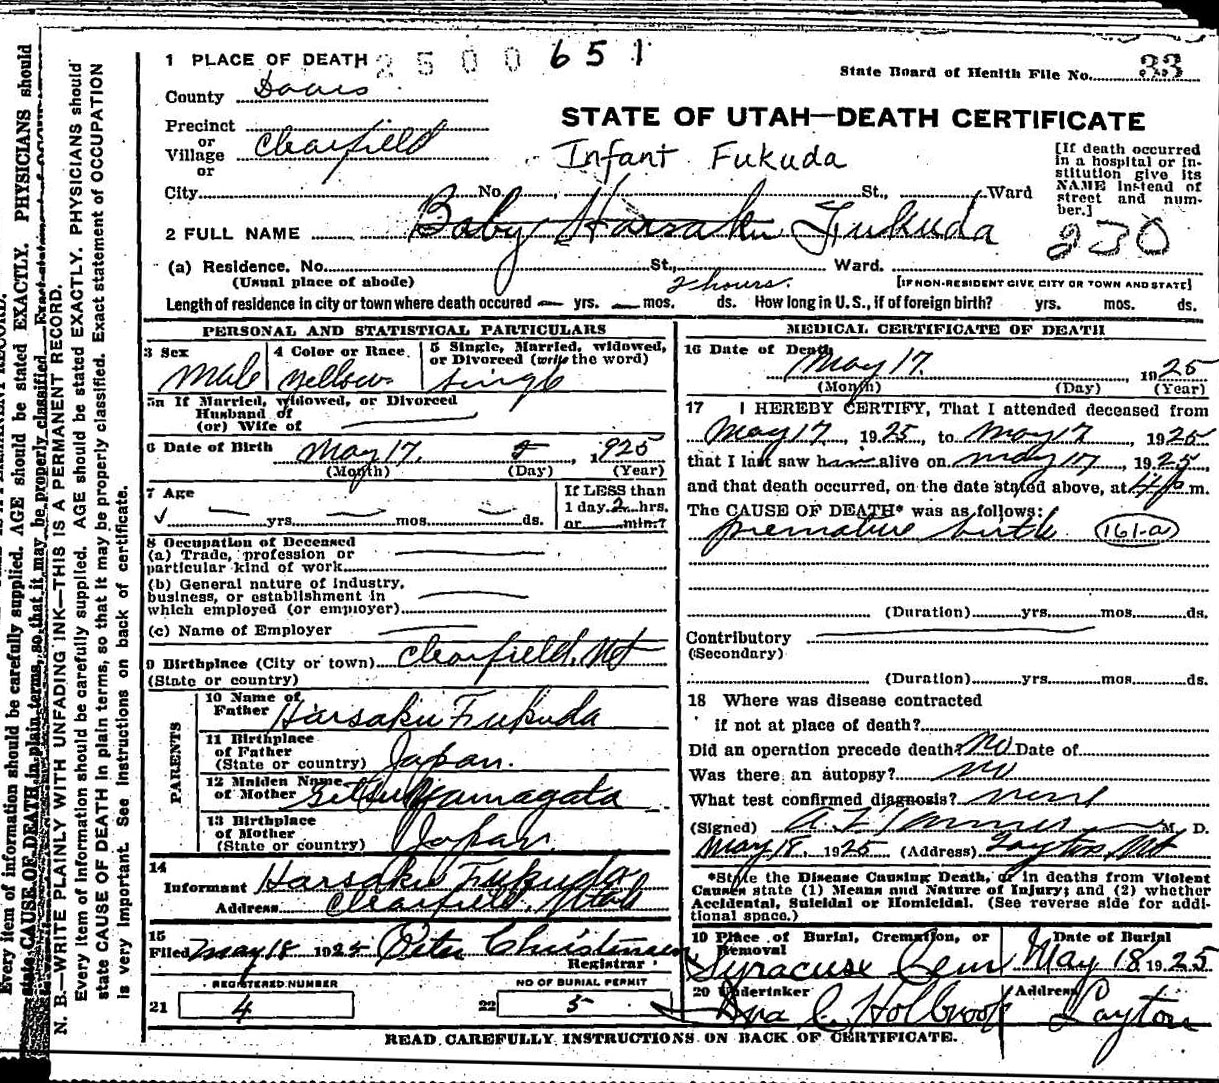 1 PLACE OF DEATH 2500 651
State Board of Health File No. 33
County Davis
STATE OF UTAH—DEATH CERTIFICATE
Precinct
or
Village Clearfield
or
Infant Fukuda
[If death occurred
in a hospital or in-
stitution give its
NAME instead of
street and num-
ber.]
City No. St., Ward
2 FULL NAME Baby Harsaku Fukuda
230
(a) Residence. No. St., Ward.
(Usual place of abode) 2 hours. [IF NON-RESIDENT GIVE CITY OR TOWN AND STATE]
Length of residence in city or town where death occured — yrs. — mos. ds. How long in U.S., if of foreign birth? yrs. mos. ds.
PERSONAL AND STATISTICAL PARTICULARS
3 Sex
Male
4 Color or Race.
Yellow
5 Single, Married, widowed,
or Divorced (write the word)
Single
5a If Married, widowed, or Divorced
Husband of
(or) Wife of
6 Date of Birth May 17. 1925
(Month) (Day) (Year)
7 Age
yrs. mos. ds.
If LESS than
1 day. 2 hrs.
or min.?
8 Occupation of Deceased
(a) Trade, profession or
particular kind of work
(b) General nature of industry,
business, or establishment in
which employed (or employer)
(c) Name of Employer
9 Birthplace (City or town) Clearfield, Ut
(State or country)
PARENTS
10 Name of
Father Harsaku Fukuda
11 Birthplace
of Father
(State or country) Japan.
12 Maiden Name
of Mother Yamagata
13 Birthplace
of Mother
(State or country) Japan
14
Informant Harsaku Fukuda
Address Clearfield, Utah
15
Filed May 18 1925 Peter Christensen
Registrar
REGISTERED NUMBER
21 4
NO OF BURIAL PERMIT
22 5
MEDICAL CERTIFICATE OF DEATH
16 Date of Death
May 17. 1925
(Month) (Day) (Year)
17 I HEREBY CERTIFY, That I attended deceased from
May 17, 1925, to May 17, 1925
that I last saw him alive on May 17, 1925,
and that death occurred, on the date stated above, at 4 p m.
The CAUSE OF DEATH* was as follows:
premature birth 161-a
(Duration) yrs. mos. ds.
Contributory
(Secondary)
(Duration) yrs. mos. ds.
18 Where was disease contracted
if not at place of death?
Did an operation precede death? No Date of
Was there an autopsy? no
What test confirmed diagnosis?
(Signed) A. Z. Tanner M. D.
May 18, 1925 (Address) Layton, Ut
*State the Disease Causing Death, or in deaths from Violent
Causes state (1) Means and Nature of Injury; and (2) whether
Accidental, Suicidal or Homicidal. (See reverse side for addi-
tional space.)
19 Place of Burial, Cremation, or
Removal
Syracuse Cem
Date of Burial
May 18 1925
20 Undertaker
Holbrook
Address
Layton
READ CAREFULLY INSTRUCTIONS ON BACK OF CERTIFICATE.
N. B.—WRITE PLAINLY WITH UNFADING INK—THIS IS A PERMANENT RECORD.
Every item of information should be carefully supplied. AGE should be stated EXACTLY. PHYSICIANS should
state CAUSE OF DEATH in plain terms, so that it may be properly classified. Exact statement of OCCUPATION
is very important. See instructions on back of certificate.
Every item of information should be carefully supplied. AGE should be stated EXACTLY. PHYSICIANS should
state CAUSE OF DEATH in plain terms, so that it may be properly classified. Exact